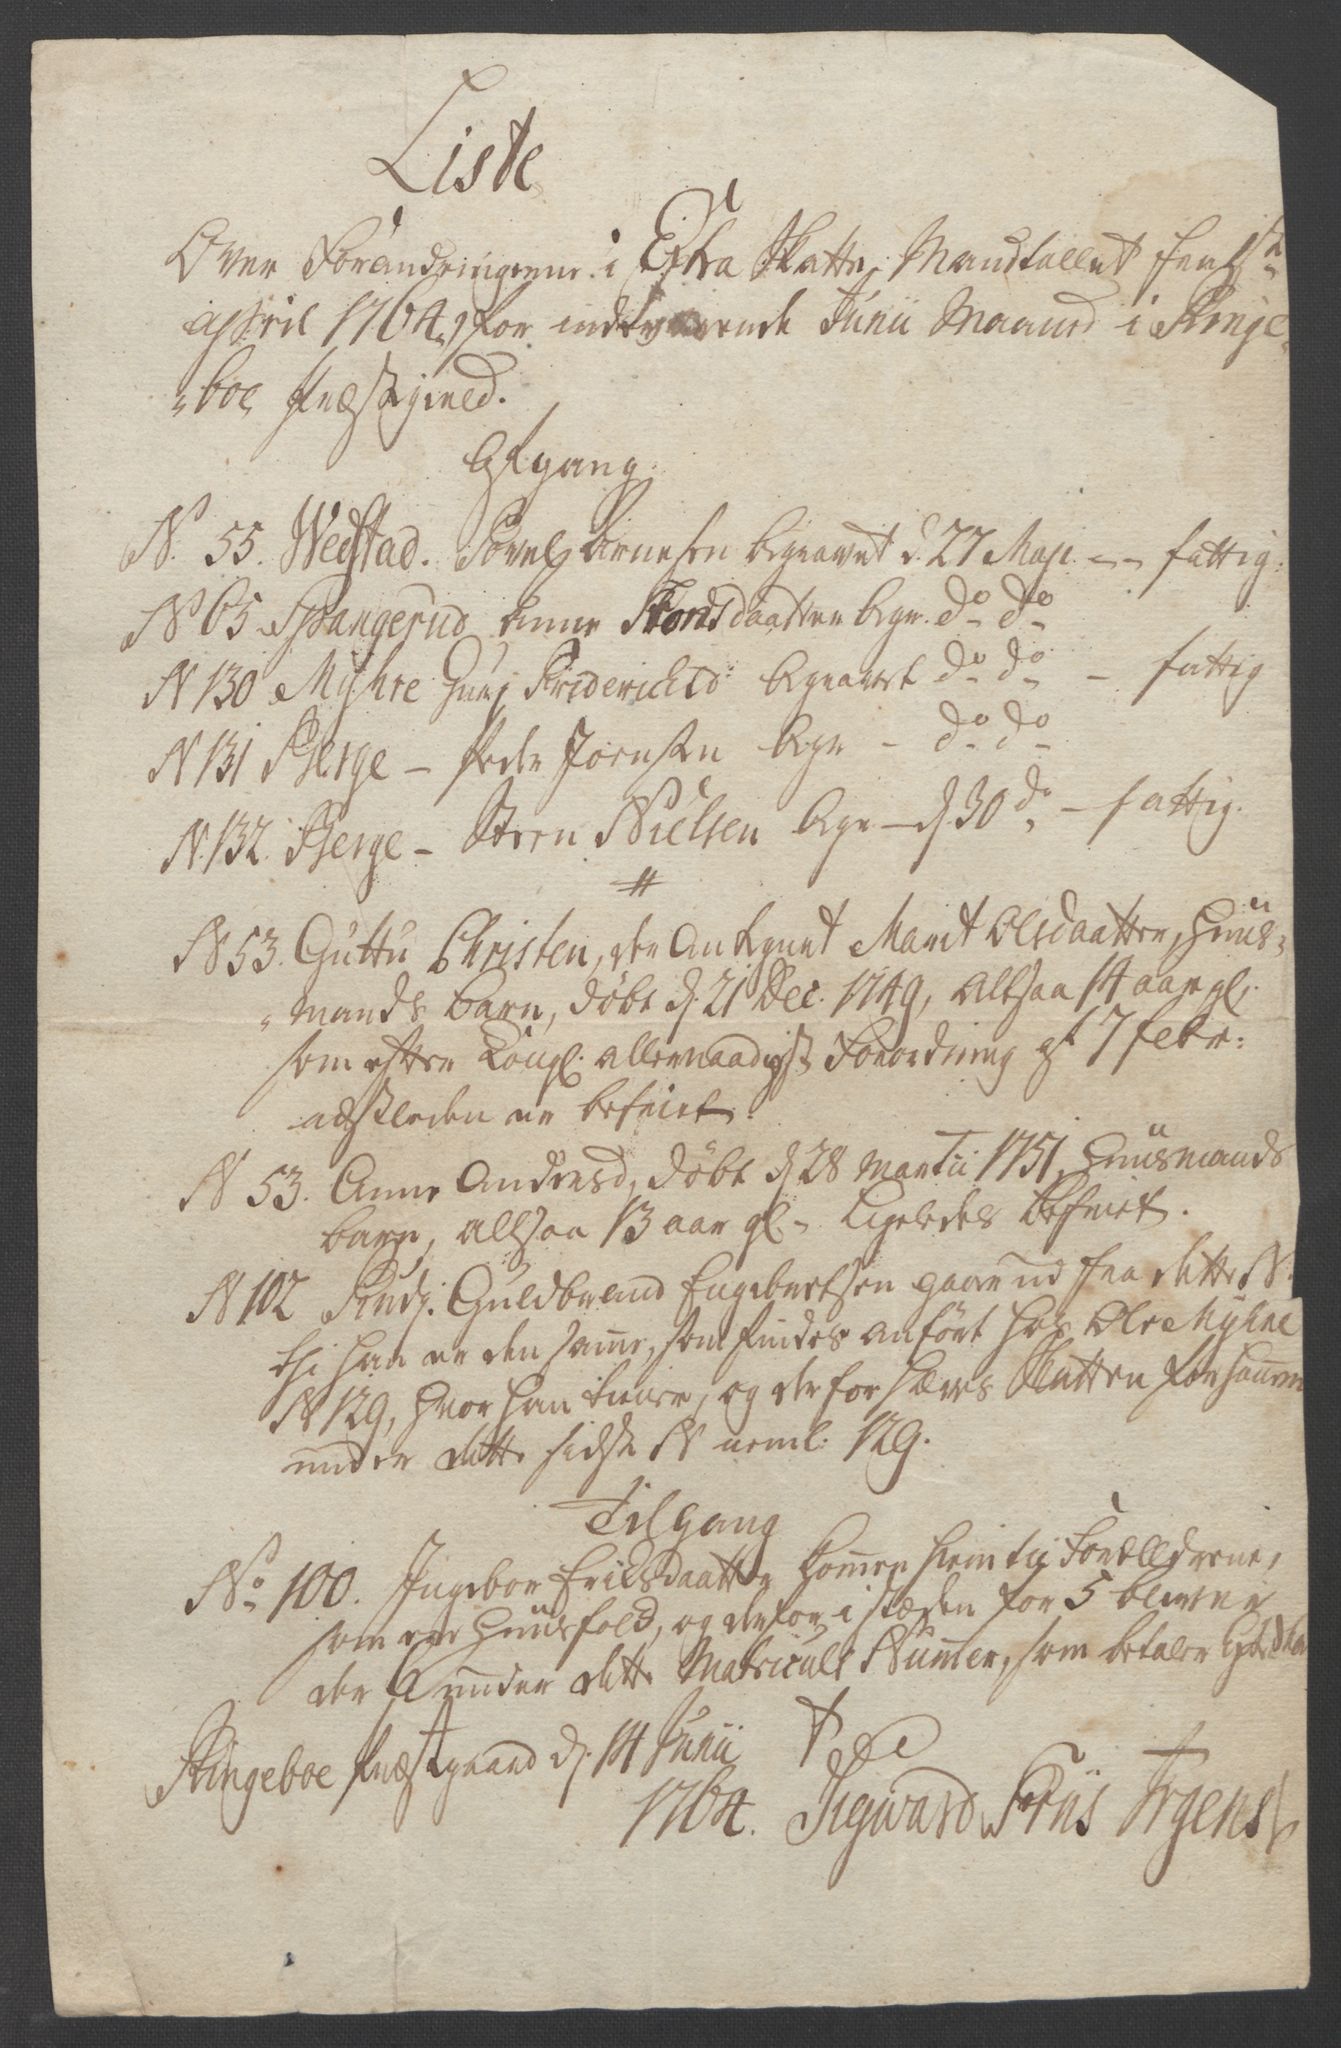 Liste
Over Forandringerne i Extra Skatte Mandtallet fra 1ste
April 1764, for indeværende Junii Maaned i Ringe-
boe Præstegield.
Afgang
N. 55. Wedstad. Povel Arnesen begravet d. 27 Maji -- fattig.
N 65 Spangerud Anne Tordsdaatter begr. do do
N 130 Myhre Guri Friderichsd: begravet do do - fattig
N 131 Berge - Peder Joensen begr - do do
N. 132. Berge - Steen Nielsen begr - d. 30 do - fattig.
#
N 53. Guttu Christen, der Antegnet Marit Olsdaatter, Huus-
mands barn, døbt d. 21 Dec. 1749, altsaa 14 aar gl.
som efter Kongl. allernaadigst Forordning af 7 febr:
næstleden er befriet.
N 53. Anne Andersd, døbt d 28 Martii 1751, Huusmands
barn, altsaa 13 aar gl. - Ligeledes befriet.
N 102 Guldbrand Engebretsen gaar ud fra dette N.
thi han er den samme, som findes anført hos Ole Myhre
N 129, hvor han tiener, og derfor hæves Skatten for hannem
under dette sidste N neml: 129.
Tilgang
No 100. Ingebor Erichsdaatter kommer hiem til Forælldrene,
som er Huusfold, og derfor i stæden for 5 bliver
der 6 under dette Matriculs Nummer, som betaler
Ringeboe Præstgaard d. 14 Junii
1764. Sigward Friis Irgens